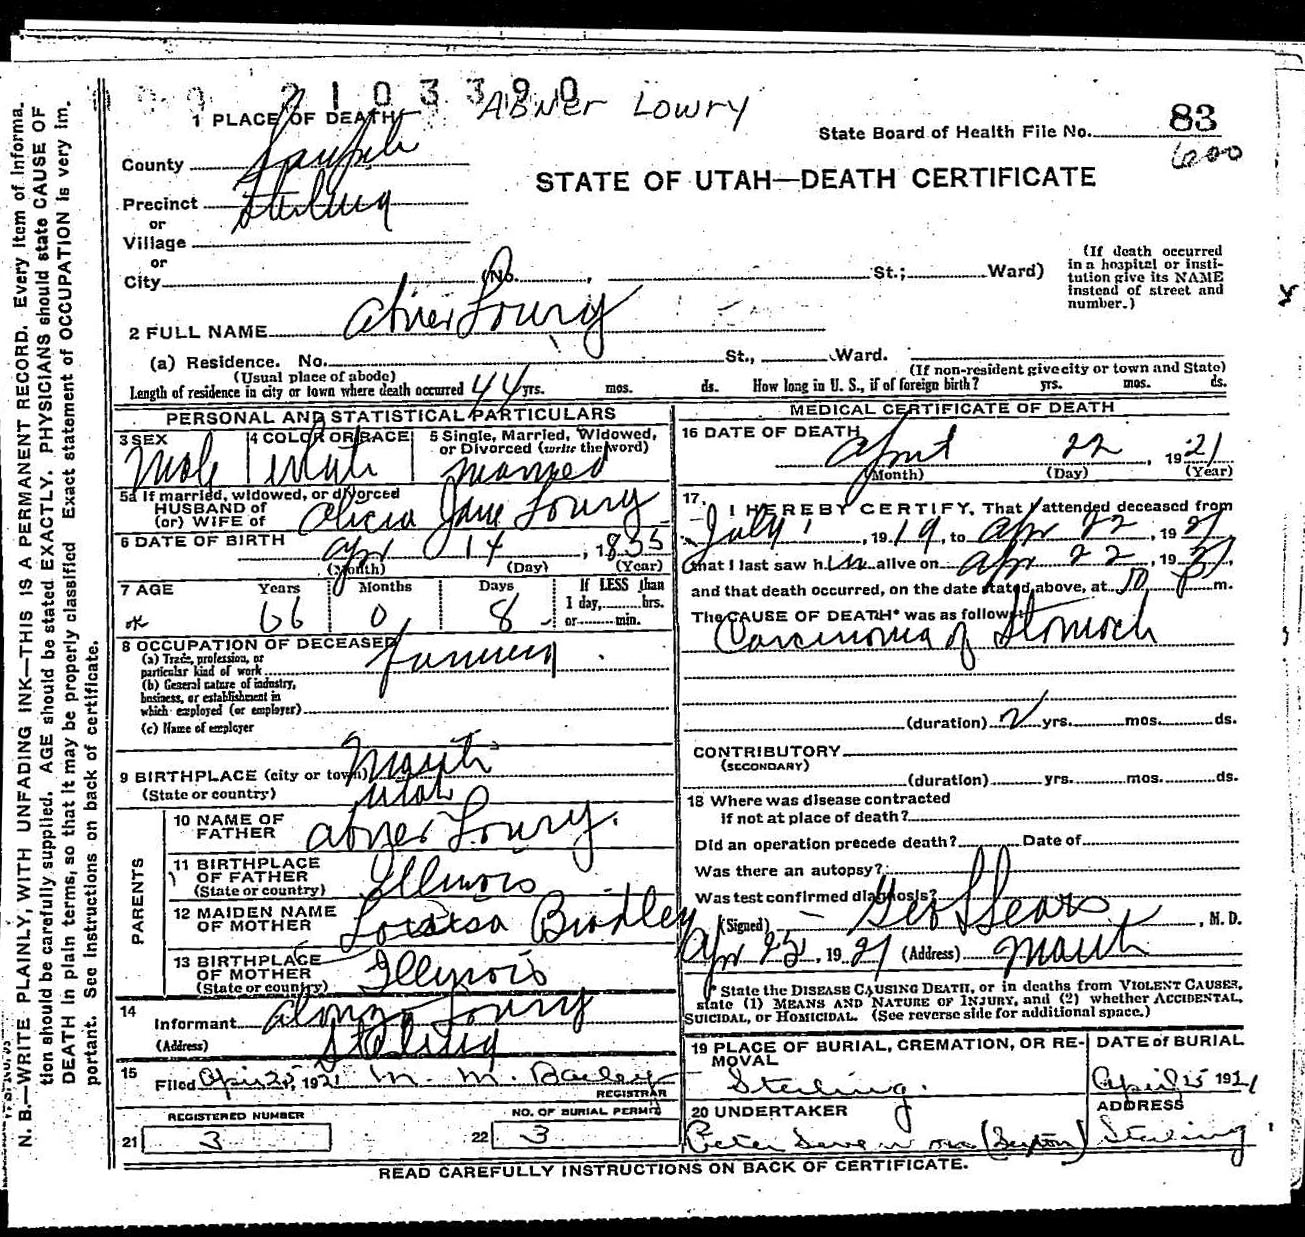 2103390 Abner Lowry
1 PLACE OF DEATH
State Board of Health File No. 83
600
County Sanpete
STATE OF UTAH—DEATH CERTIFICATE
Precinct Sterling
or
Village
or
City (No. , St.; Ward)
(If death occurred
in a hospital or insti-
tution give its NAME
instead of street and
number.)
2 FULL NAME Abner Lowry
(a) Residence. No. St., Ward.
(Usual place of abode) (If non-resident give city or town and State)
Length of residence in city or town where death occurred 44 yrs. mos. ds. How long in U. S., if of foreign birth? yrs. mos. ds.
PERSONAL AND STATISTICAL PARTICULARS
3 SEX 4 COLOR OR RACE 5 Single, Married, Widowed,
or Divorced (write the word)
Male White Married
5a If married, widowed, or divorced
HUSBAND of
(or) WIFE of Alicia Jane Lowry
6 DATE OF BIRTH Apr 14, 1855
(Month) (Day) (Year)
7 AGE Years Months Days If LESS than
1 day, hrs.
or min.
ok 66 0 8
8 OCCUPATION OF DECEASED
(a) Trade, profession, or
particular kind of work
(b) General nature of industry,
business, or establishment in
which employed (or employer)
(c) Name of employer
9 BIRTHPLACE (city or town) Manti
(State or country) Utah
PARENTS
10 NAME OF
FATHER Abner Lowry.
11 BIRTHPLACE
OF FATHER
(State or country) Illinois
12 MAIDEN NAME
OF MOTHER Bradley
13 BIRTHPLACE
OF MOTHER
(State or country) Illinois
14
Informant Alonzo Lowry
(Address) Sterling
15
Filed Apr 25, 1921 M. M. Bailey
REGISTRAR
REGISTERED NUMBER NO. OF BURIAL PERMIT
21 3 22 3
MEDICAL CERTIFICATE OF DEATH
16 DATE OF DEATH
April 22, 1921
(Month) (Day) (Year)
17. I HEREBY CERTIFY, That I attended deceased from
July 1, 1919, to Apr 22, 1921
that I last saw him alive on Apr 22, 1921,
and that death occurred, on the date stated above, at 10 P m.
The CAUSE OF DEATH* was as follows:
Carcinoma of Stomach
(duration) 2 yrs. mos. ds.
CONTRIBUTORY
(SECONDARY)
(duration) yrs. mos. ds.
18 Where was disease contracted
if not at place of death?
Did an operation precede death? Date of
Was there an autopsy?
Was test confirmed diagnosis?
(Signed) Geo L Sears, M. D.
Apr 25, 1921 (Address) Manti
* State the DISEASE CAUSING DEATH, or in deaths from VIOLENT CAUSES,
state (1) MEANS AND NATURE OF INJURY, and (2) whether ACCIDENTAL,
SUICIDAL, or HOMICIDAL. (See reverse side for additional space.)
19 PLACE OF BURIAL, CREMATION, OR RE-
MOVAL
Sterling.
DATE of BURIAL
April 25 1921
20 UNDERTAKER
Peter (Sexton)
ADDRESS
Sterling
READ CAREFULLY INSTRUCTIONS ON BACK OF CERTIFICATE.
N. B.—WRITE PLAINLY, WITH UNFADING INK—THIS IS A PERMANENT RECORD. Every item of informa-
tion should be carefully supplied. AGE should be stated EXACTLY. PHYSICIANS should state CAUSE OF
DEATH in plain terms, so that it may be properly classified. Exact statement of OCCUPATION is very im-
portant. See instructions on back of certificate.